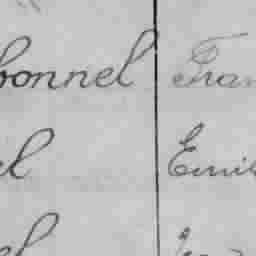 bonnel Fran
el Emil
el